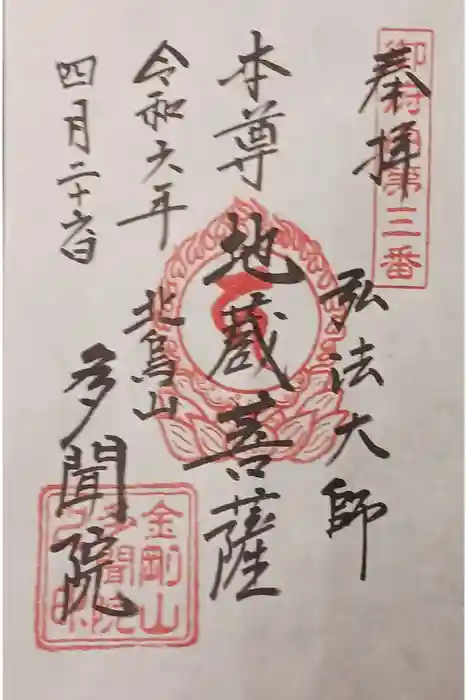 御府内第三番
奉拝
弘法大師
本尊
地蔵菩薩
令和六年
北烏山
四月二十六日
多聞院
金剛山
多聞院